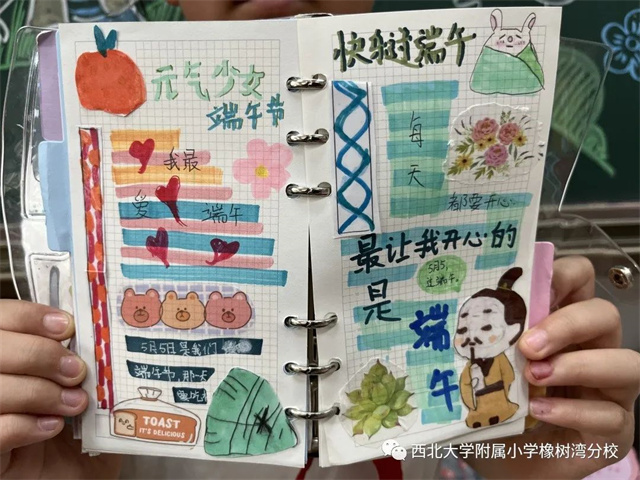 元气少女
端午节
我最
爱 端午
5月5日是我们
端午节,那一天
要吃
TOAST
IT'S DELICIOUS
快乐过端午
每
天
都要开心
最让我开心的
是
5月5,
过端午。
端
午
西北大学附属小学橡树湾分校